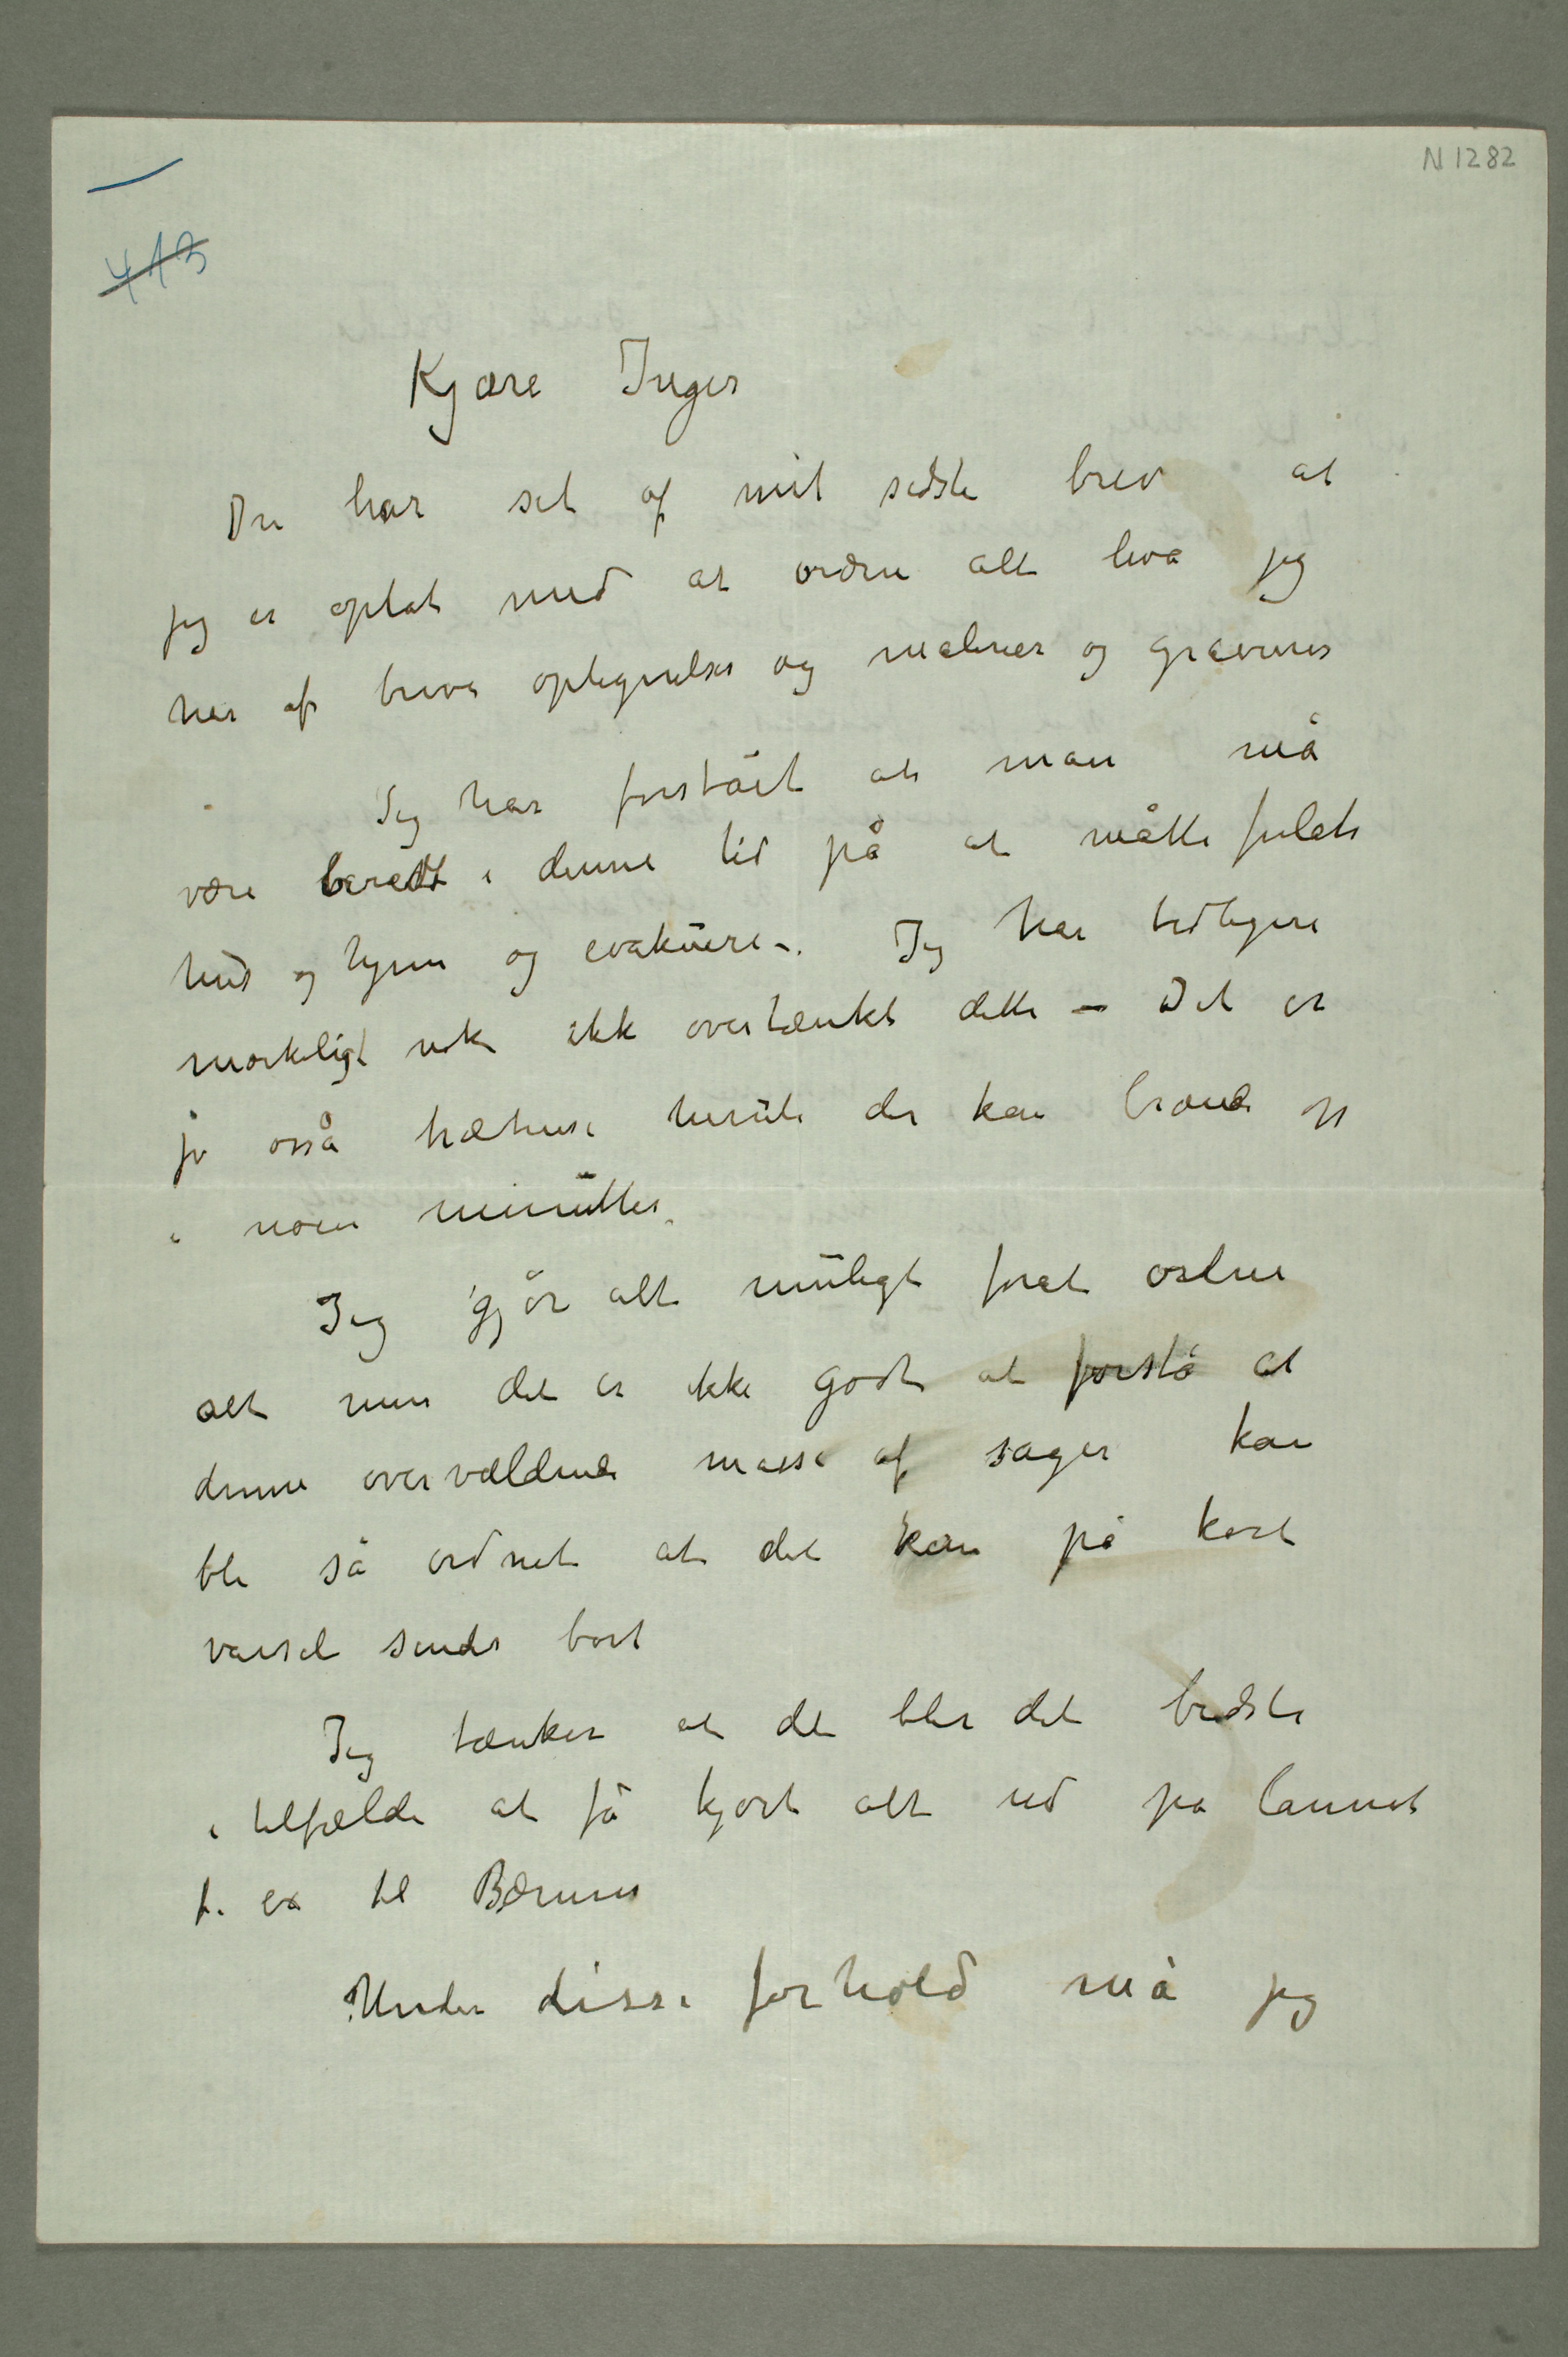 N 1282
413
Kjære Inger
Du har set af mit sidste brev at
jeg er optat med at ordne alt hva jeg
har af breve optegnelser og malerier og gravurer
Jeg har forstået at man må
være beredt i denne tid på at måtte forlate
hus og hjem og evakuere –. Jeg har tidligere
mærkeligt nok ikke overtænkt dette – Det er
jo osså træhuse herute der kan brænde op
i noen minutter.
Jeg gjør alt muligt forat ordne
alt men det er ikke godt at forstå at
denne overvældende masse af sager kan
bli så ordnet at det kan på kort
varsel sendes bort
Jeg tænker at det blir det bedste
i tilfælde at få kjørt alt ud på lannet
t. ex til Bærum
Under disse forhold må jeg